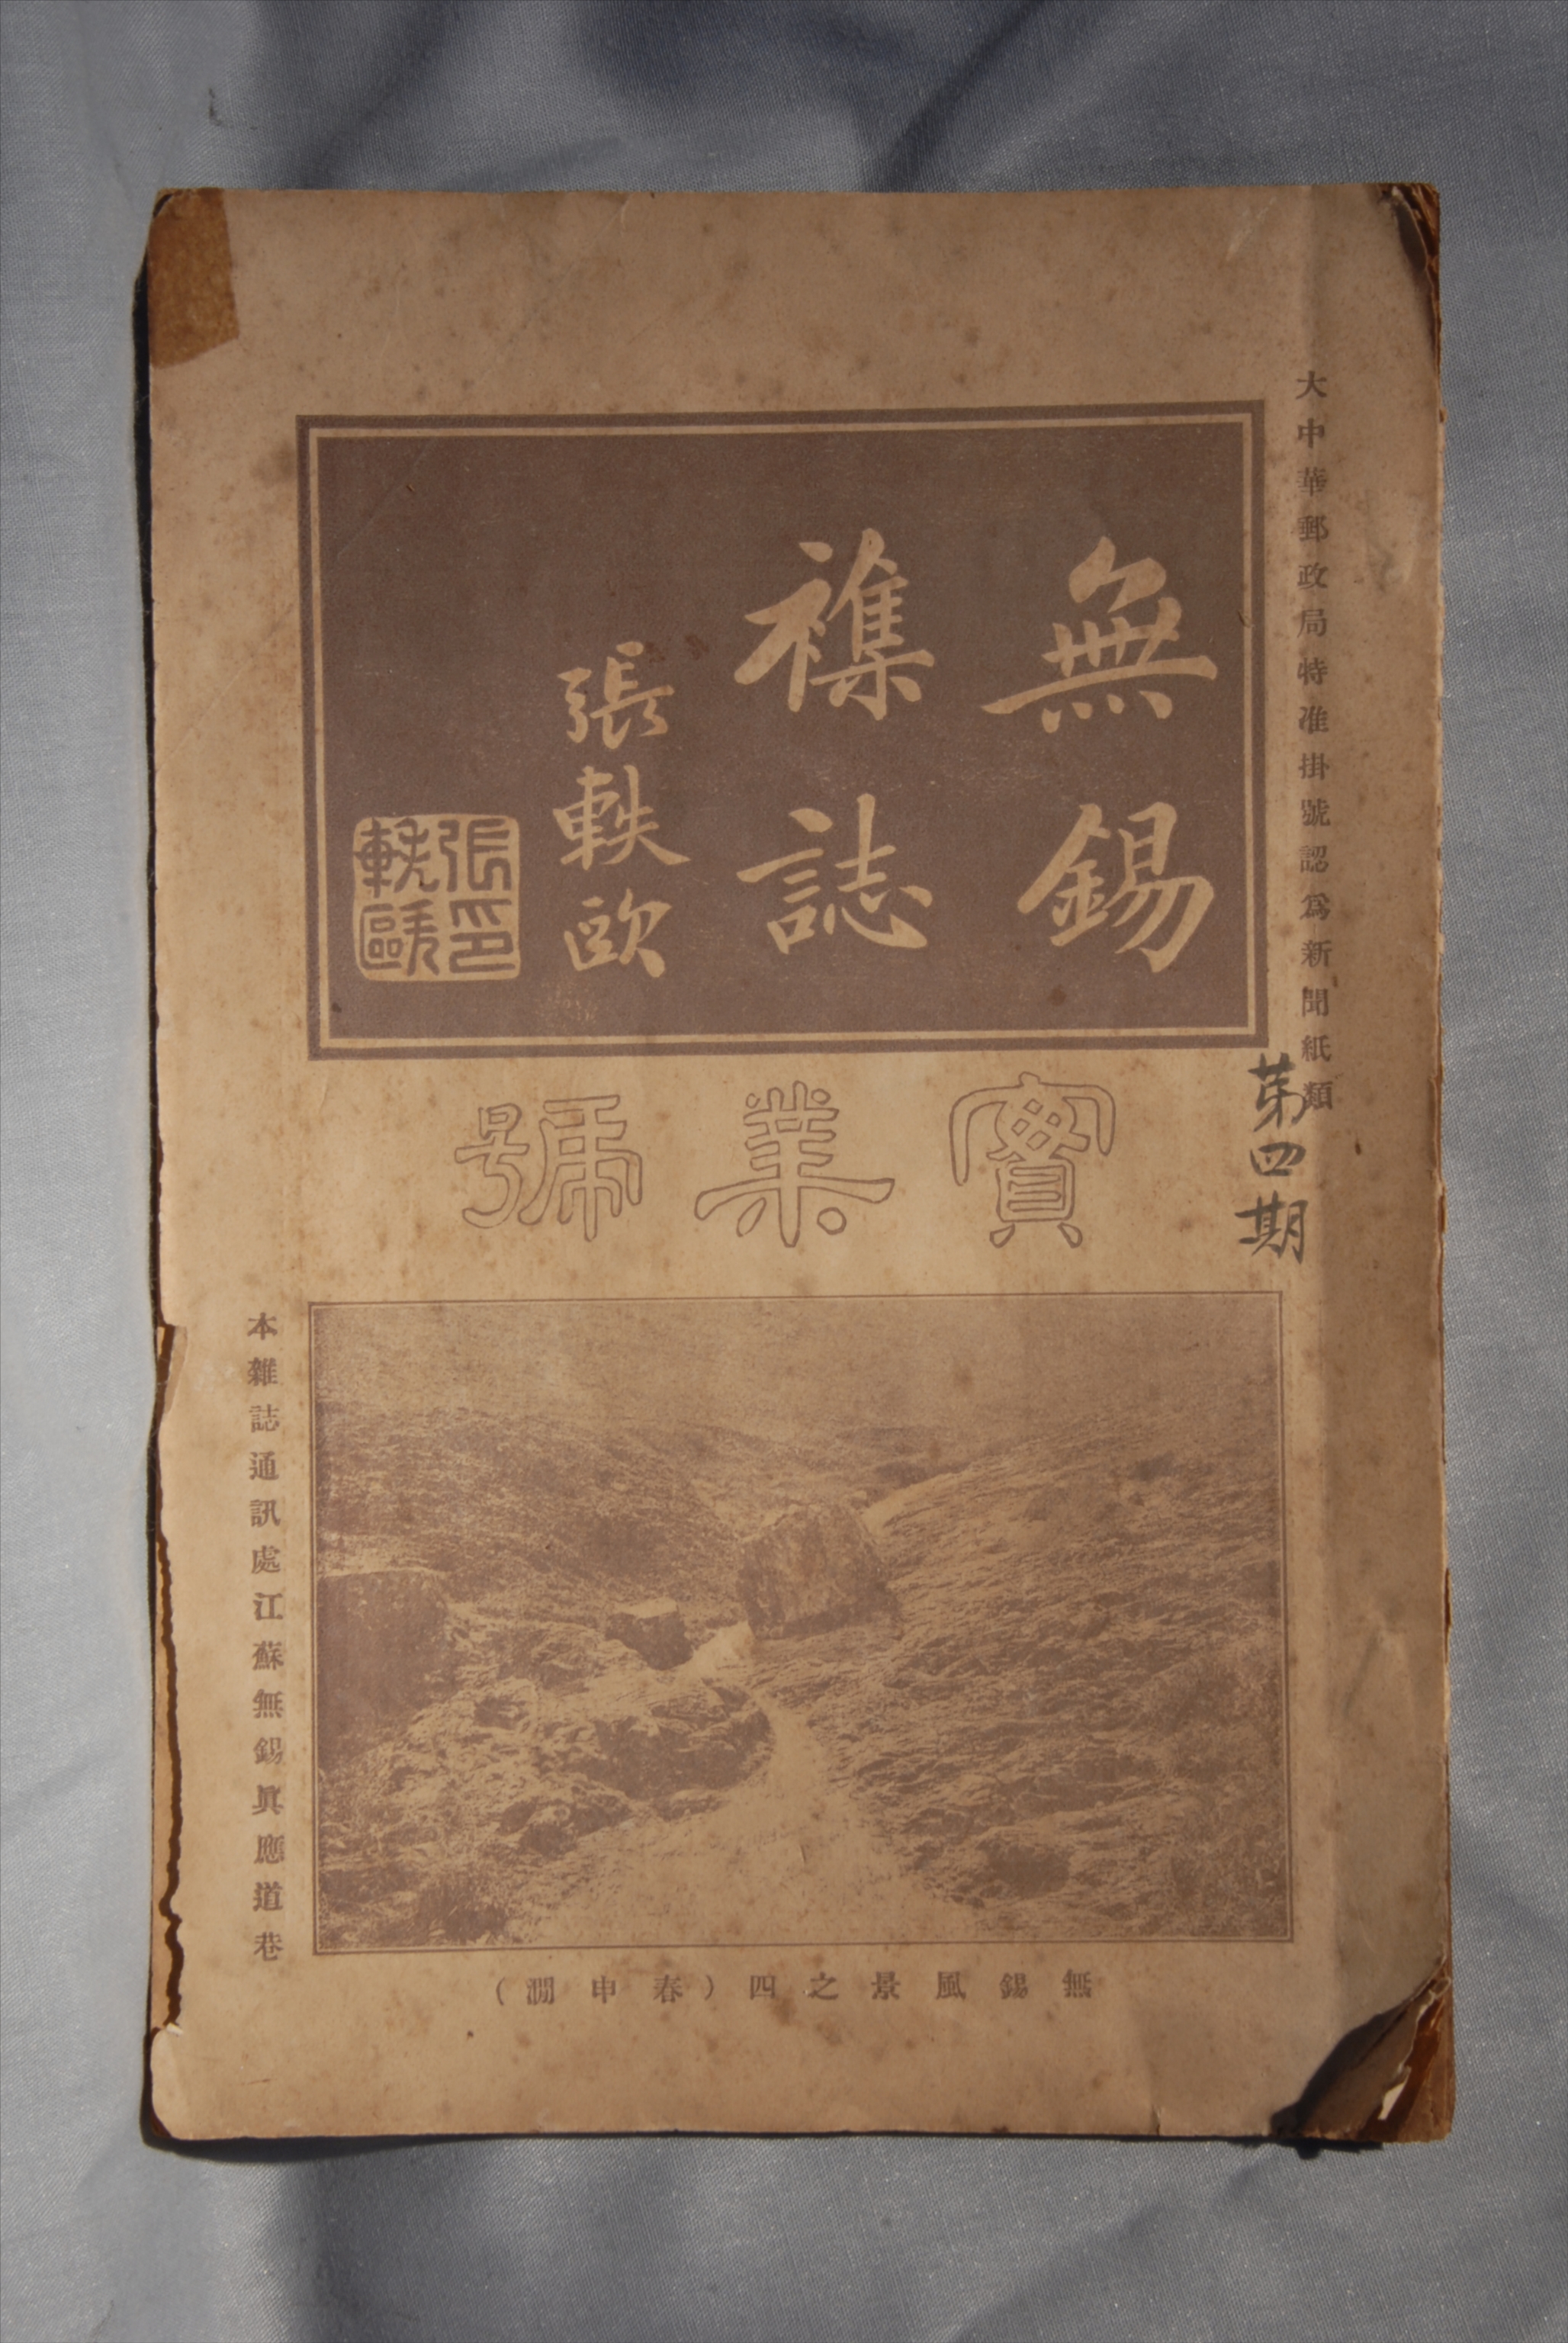 大中華郵政局特准掛號認爲新聞紙類
無錫
襍誌
張軼歐
張印
軼歐
實業號
第四期
無錫風景之四（春申澗）
本雜誌通訊處江蘇無錫眞應道巷